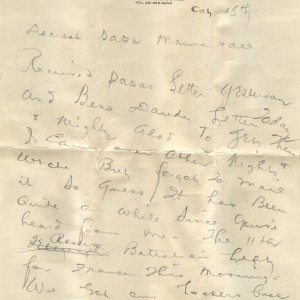 TEL. 461 RED BANK
Oct 15th
Dearest Papa Mama &
Received Papas Letter Yesterday
and Bens Dandy Letter Today
& Mighty Glad To Get Them
I Can over other Night &
Wrote But forgot To Mail
it So Guess It has Been
Quite a While Since You've
heard from me The 11th
Reserve Battalion left
for France This Morning
We Got our back